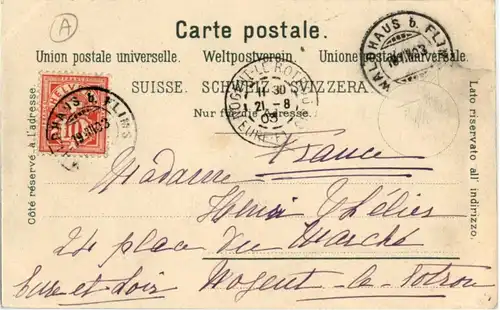 A
Carte postale.
WALDHAUS b. FLIMS
Union postale universelle. Weltpostverein. Unione postale universale.
SUISSE. SCHWEIZ. SVIZZERA.
Nur für die Adresse.
Côté réservé à l'adresse.
Lato riservato all' indirizzo.
NOGENT-LE-ROTROU
17 30
21 - 8
03
HELVETIA
10
WALDHAUS b. FLIMS
France
Madame
Henri Thélier
24 place du Marché
Eure-et-Loir Nogent-le-Rotrou